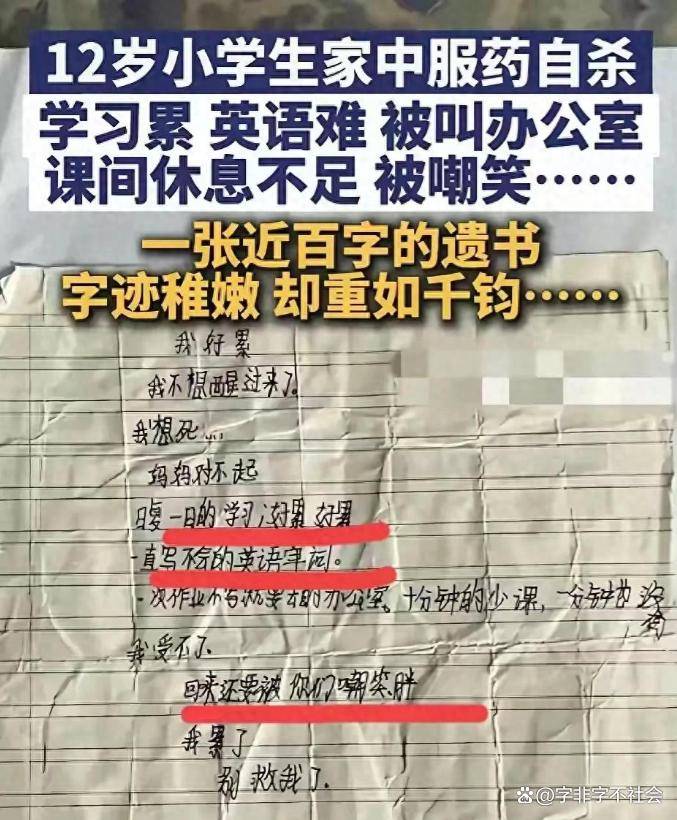 12岁小学生家中服药自杀
学习累 英语难 被叫办公室
课间休息不足 被嘲笑……
一张近百字的遗书
字迹稚嫩 却重如千钧……
我好累
我不想醒过来了。
我想死...
妈妈对不起
日复一日的学习,好累 好累
一直写不会的英语单词。
一次作业不写就要去的办公室。十分钟的少课,一分钟也没有
我受不了.
回来还要被你们嘲笑胖
我累了
别救我了.
@字非字不社会